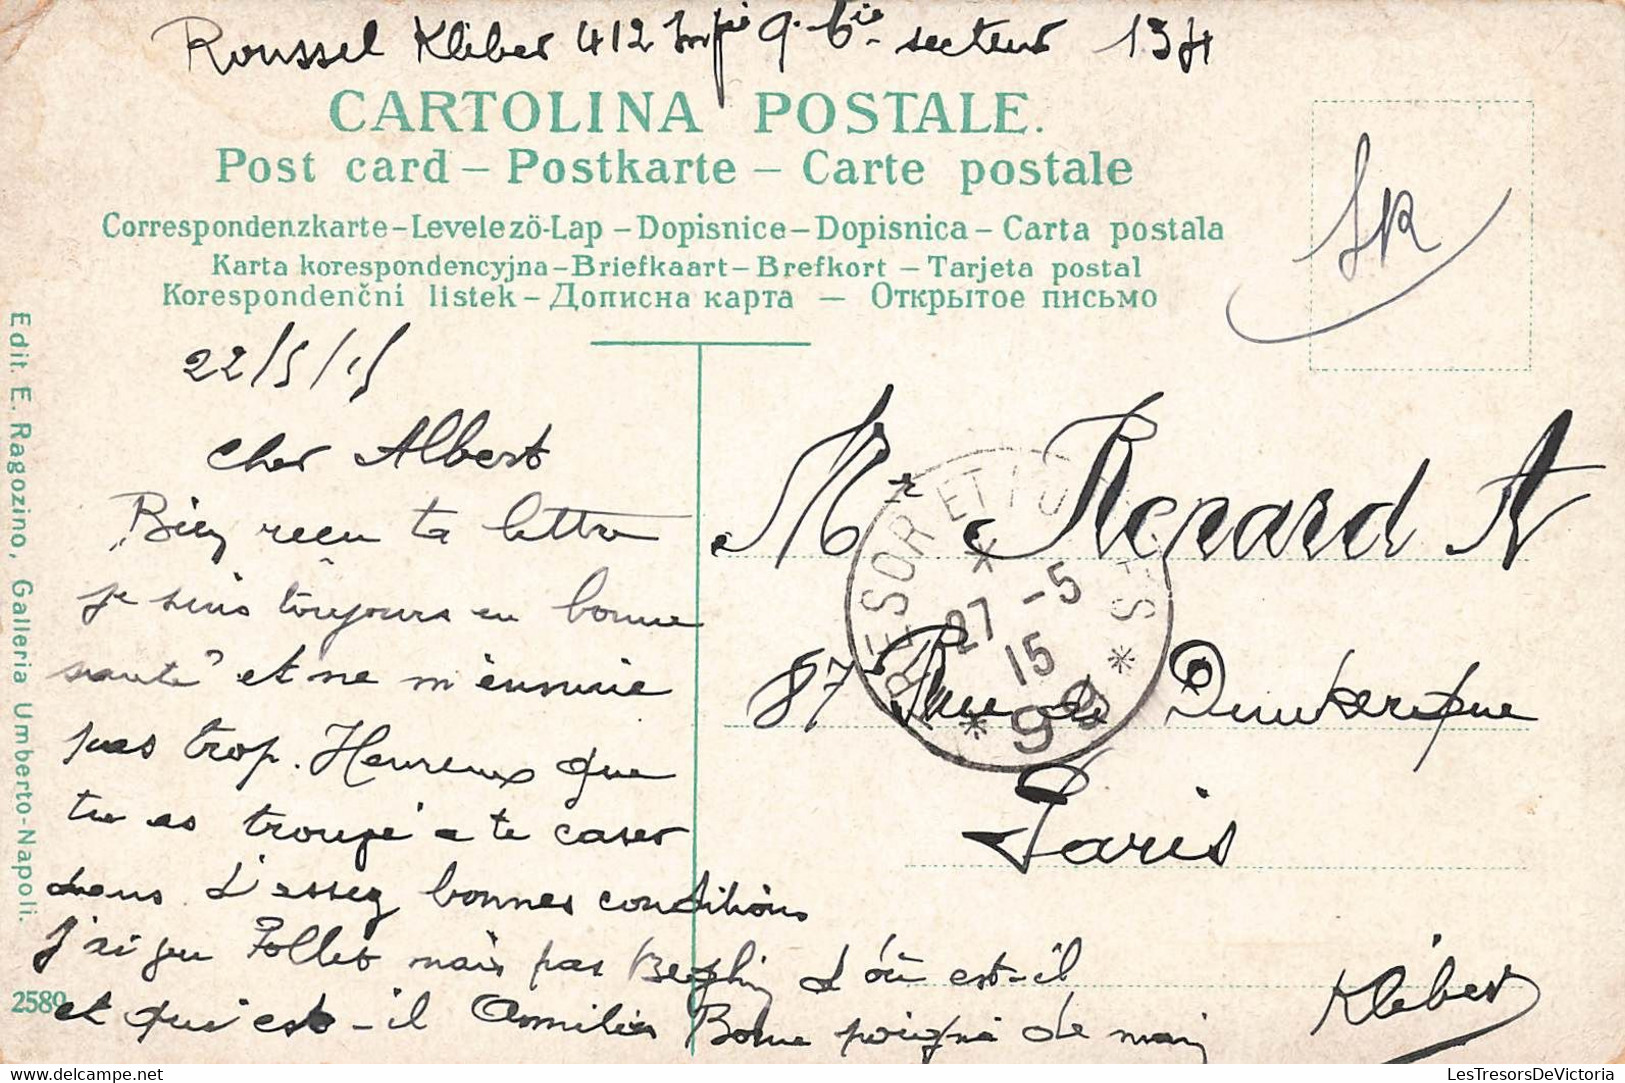 Roussel Kléber 412 Infie 9. Cie secteur 134
CARTOLINA POSTALE.
Post card – Postkarte – Carte postale
Correspondenzkarte – Levelező-Lap – Dopisnice – Dopisnica – Carta postala
Karta korespondencyjna – Briefkaart – Brefkort – Tarjeta postal
Korespondenčni listek – Дописна карта — Открытое письмо
22/5/15
Cher Albert
Bien reçu ta lettre
je suis toujours en bonne
santé et ne m'ennuie
pas trop. Heureux que
tu es trouvé a te caser
dans d'assez bonnes conditions
J'ai vu Follet mais pas d'où est-il
et qui est-il Amitiés Bonne poigné de main
Kléber
SR
Mr Renard A
87 Rue de Dunkerque
Paris
TRESOR ET POSTES
27 -5
15
* 99 *
Edit. E. Ragozino, Galleria Umberto-Napoli.
2580
delcampe.net
LesTresorsDeVictoria